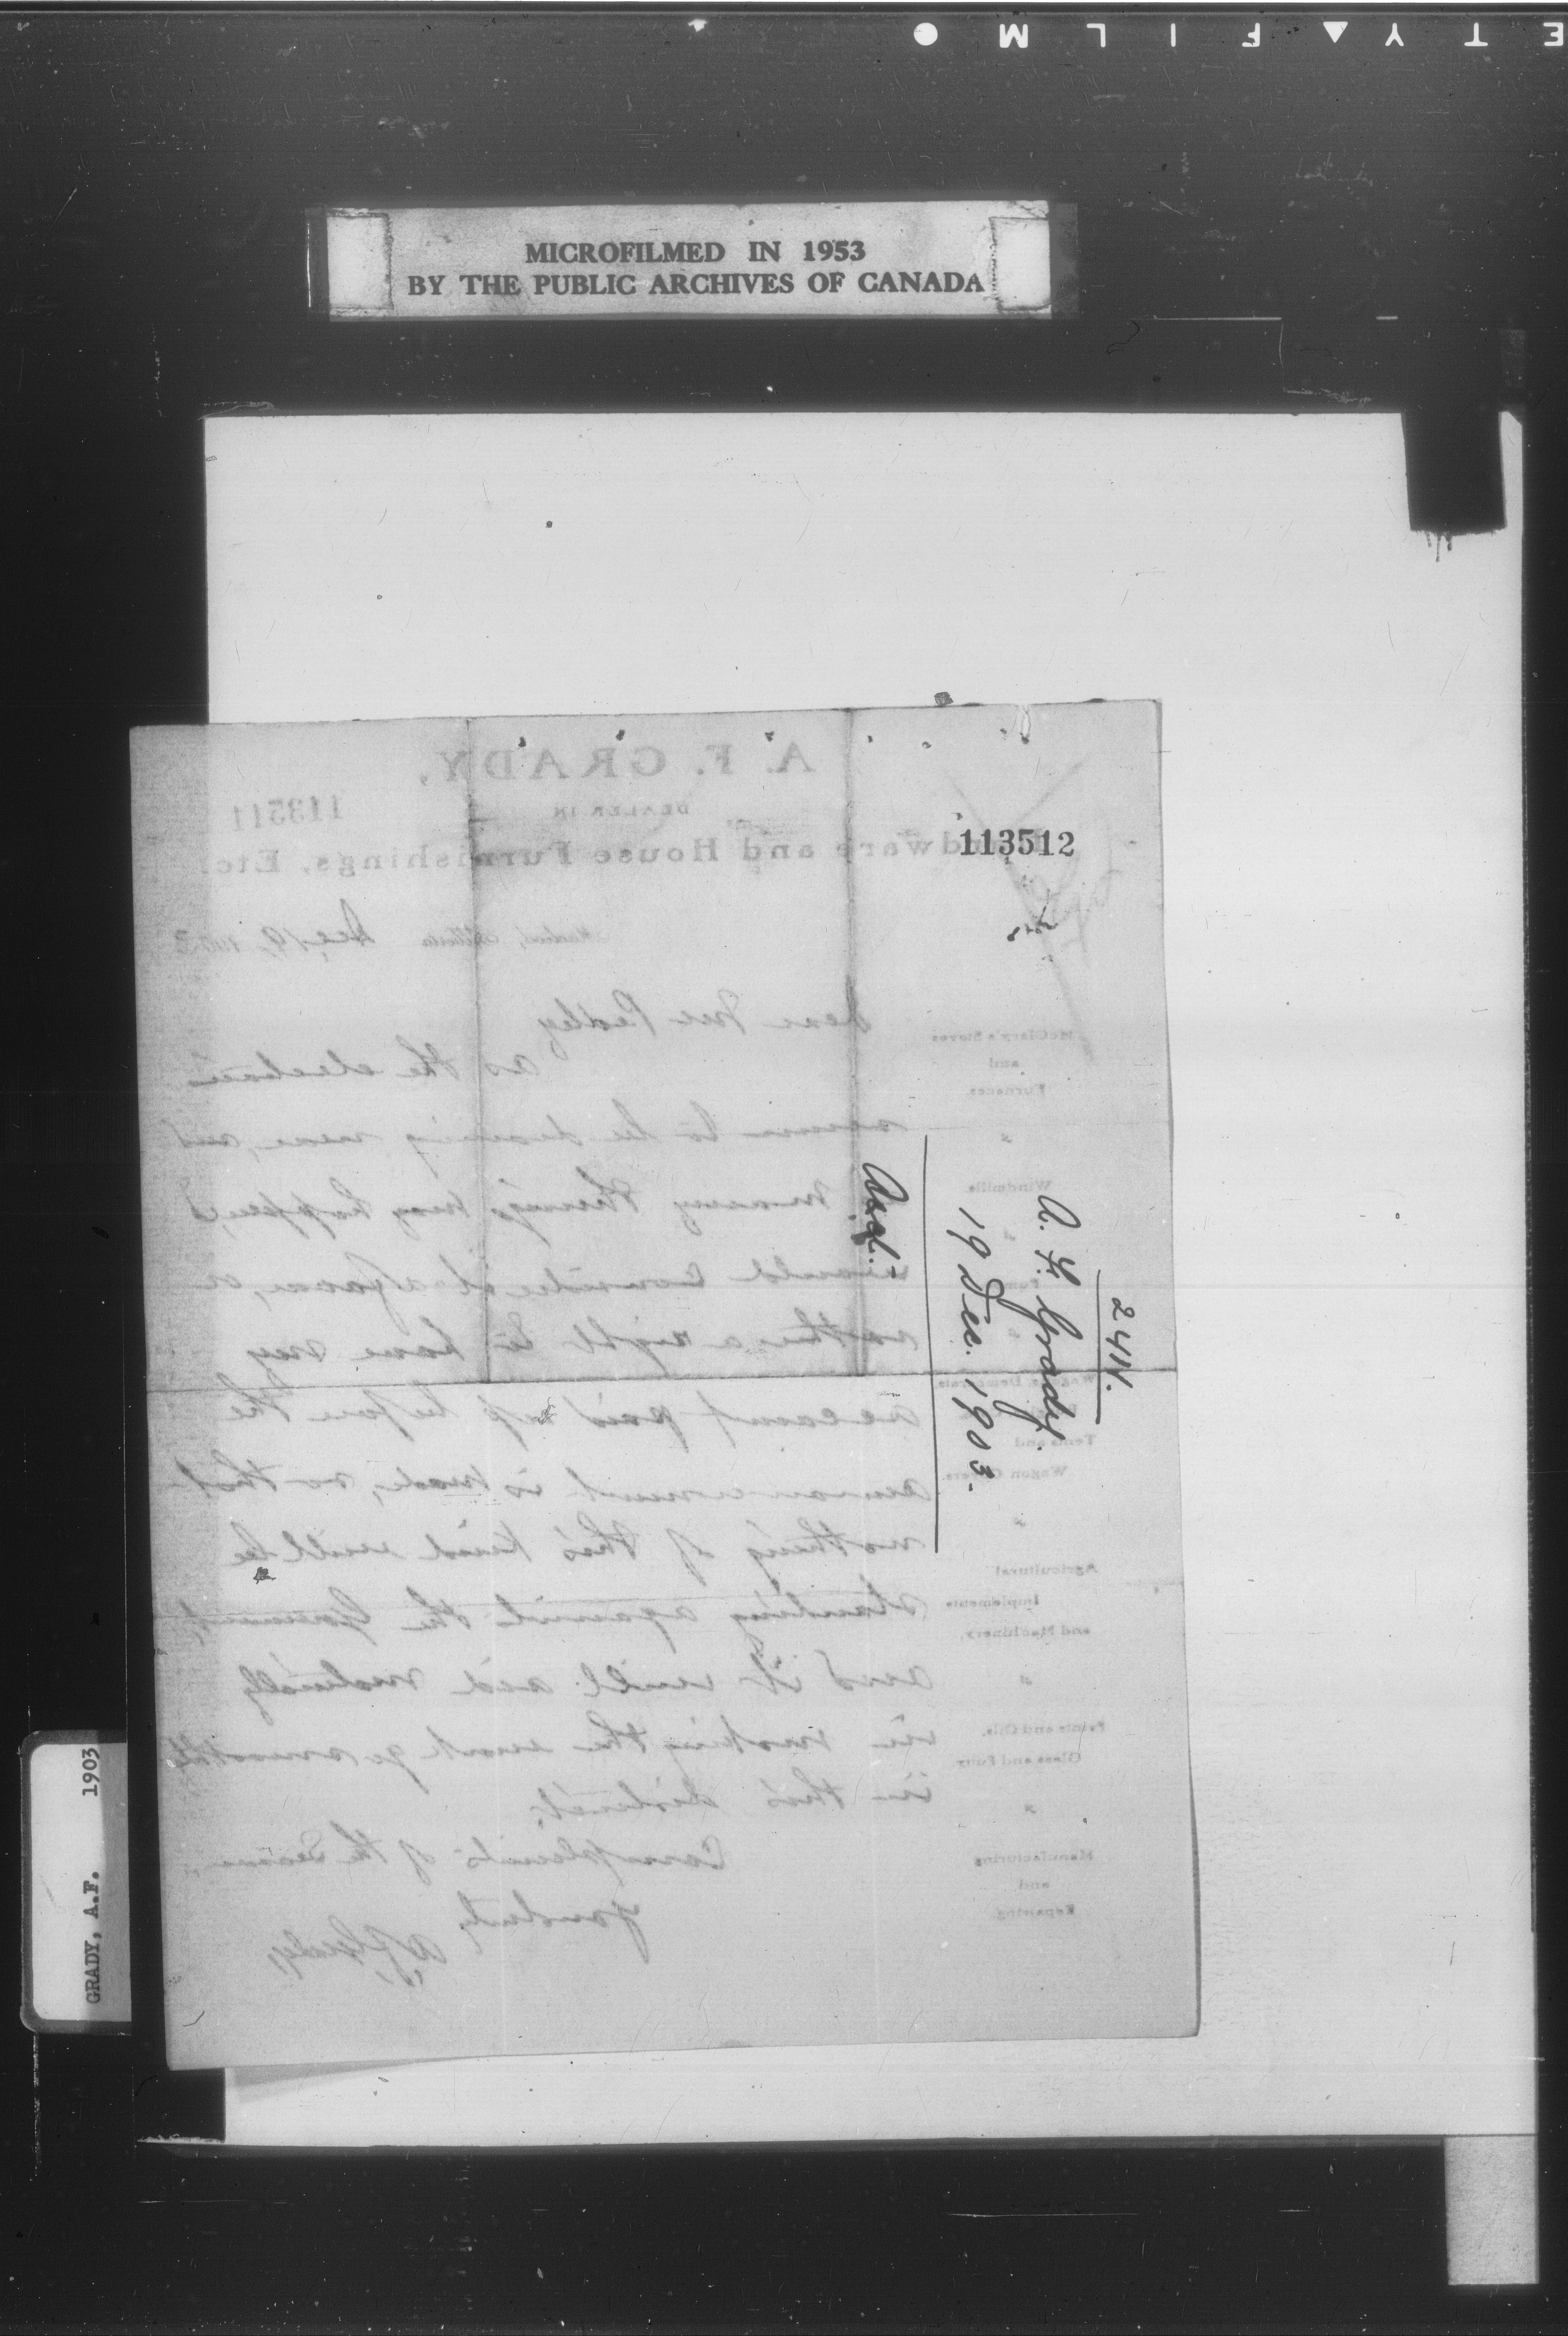 E T Y ▲ F I L M ●
MICROFILMED IN 1953
BY THE PUBLIC ARCHIVES OF CANADA
A. F. GRADY,
DEALER IN
Hardware and House Furnishings, Etc.
113511
113512
Alberta Dec 19 1903
McClary's Stoves
and
Furnaces
"
Windmills
"
"
Wagons, Democrats
Tents and
Wagon Covers
"
Agricultural
Implements
and Machinery,
"
Paints and Oils,
Glass and Putty
"
Manufacturing
and
Repairing
Dear Mr Pedley
as the elections
seems to be drawing near, and
many things may happen, I
would consider it a favor, or
rather a right to have my
account paid up before the
announcement is made, so that
nothing of this kind will be
standing against the Government,
and it will aid materially
in making the work go smoothly
in this district.
Compliments of the Season
Yours truly
A F Grady
2411.
A. F. Grady.
19 Dec. 1903.
Ackd.
GRADY, A.F. 1903